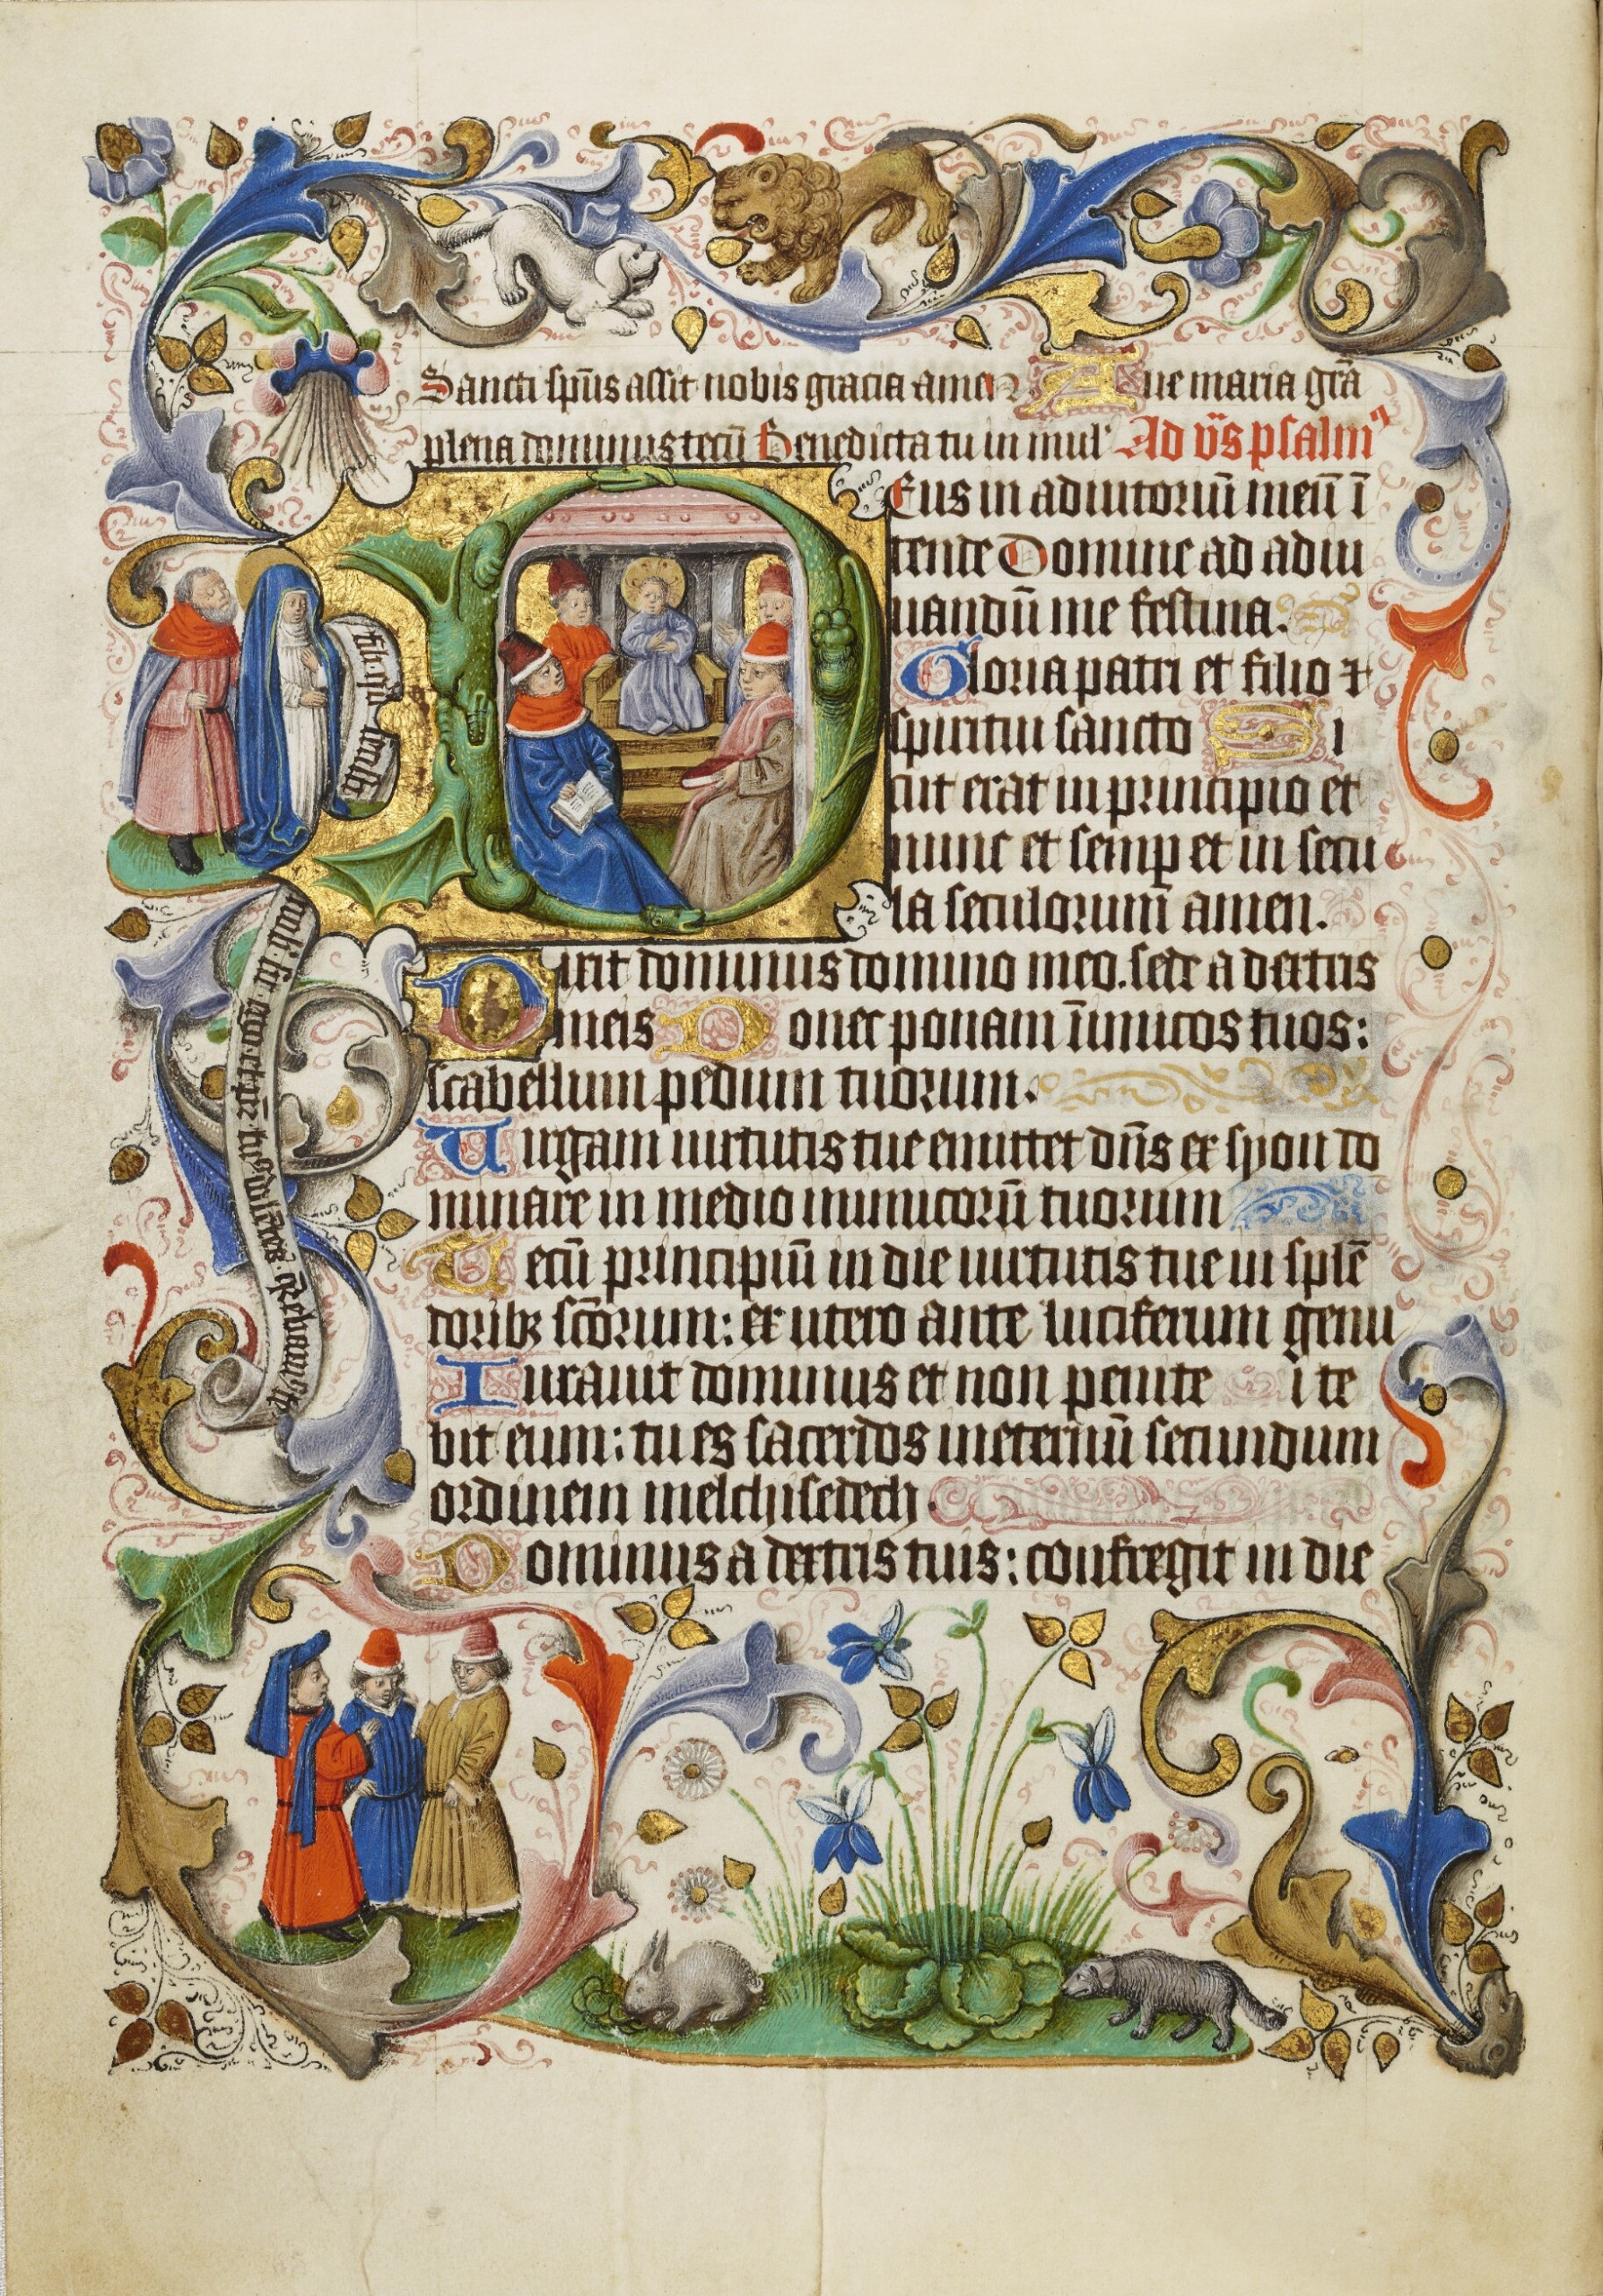 Sancti sp̄us assit nobis gracia amen Aue maria grā
plena dominus tecū Benedicta tu in mul' Ad v̄s psalm⁹
Deus in adiutoriū meū ī
tende Domine ad adiu
uandū me festina.
Gloria patri et filio ⁊
spiritui sancto Si
cut erat in principio et
nunc et semp et in secu
la seculorum amen.
fili quid fecisti
nobis sic ego et pr̄ tu⁹ dolētes q̄rebamus te
Dixit dominus domino meo. sede a dextris
meis Donec ponam īimicos tuos:
scabellum pedum tuorum.
Uirgam uirtutis tue emittet dn̄s ex syon do
minare in medio inimicorū tuorum
Tecū principiū in die uirtutis tue in splē
doribꝫ sc̄orum: ex utero ante luciferum genu
Iurauit dominus et non penite i te
bit eum: tu es sacerdos ineternū secundum
ordinem melchisedech.
Dominus a dextris tuis: confregit in die